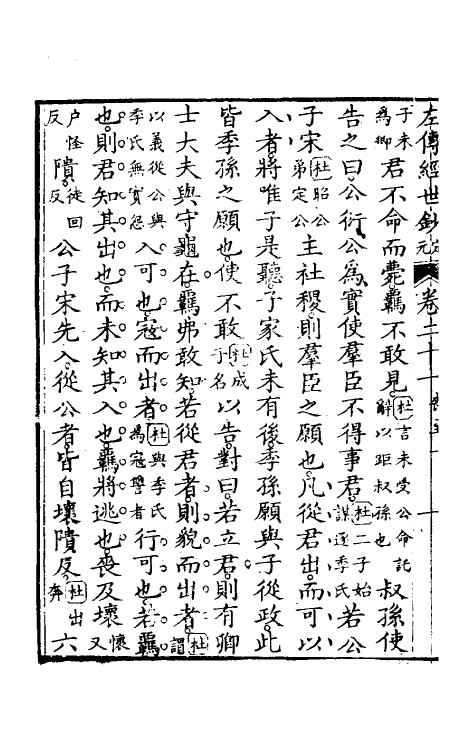 左傳經世鈔 卷二十一
子未爲卿君不命而薨羈不敢見杜言未受公命託辭以距叔孫也叔孫使
告之曰公衍公爲實使羣臣不得事君杜二子始謀逐季氏若公
子宋杜昭公弟定公主社稷則羣臣之願也凡從君出而可以
入者將唯子是聽子家氏未有後季孫願與子從政此
皆季孫之願也使不敢杜成子名以告對曰若立君則有卿
士大夫與守龜在羈弗敢知若從君者則貌而出者杜謂
以義從公與季氏無實怨入可也寇而出者杜與季氏爲寇讐者行可也若羈
也則君知其出也而未知其入也羈將逃也喪及壞懷又
户怪反隤徒回反公子宋先入從公者皆自壞隤反杜出奔六